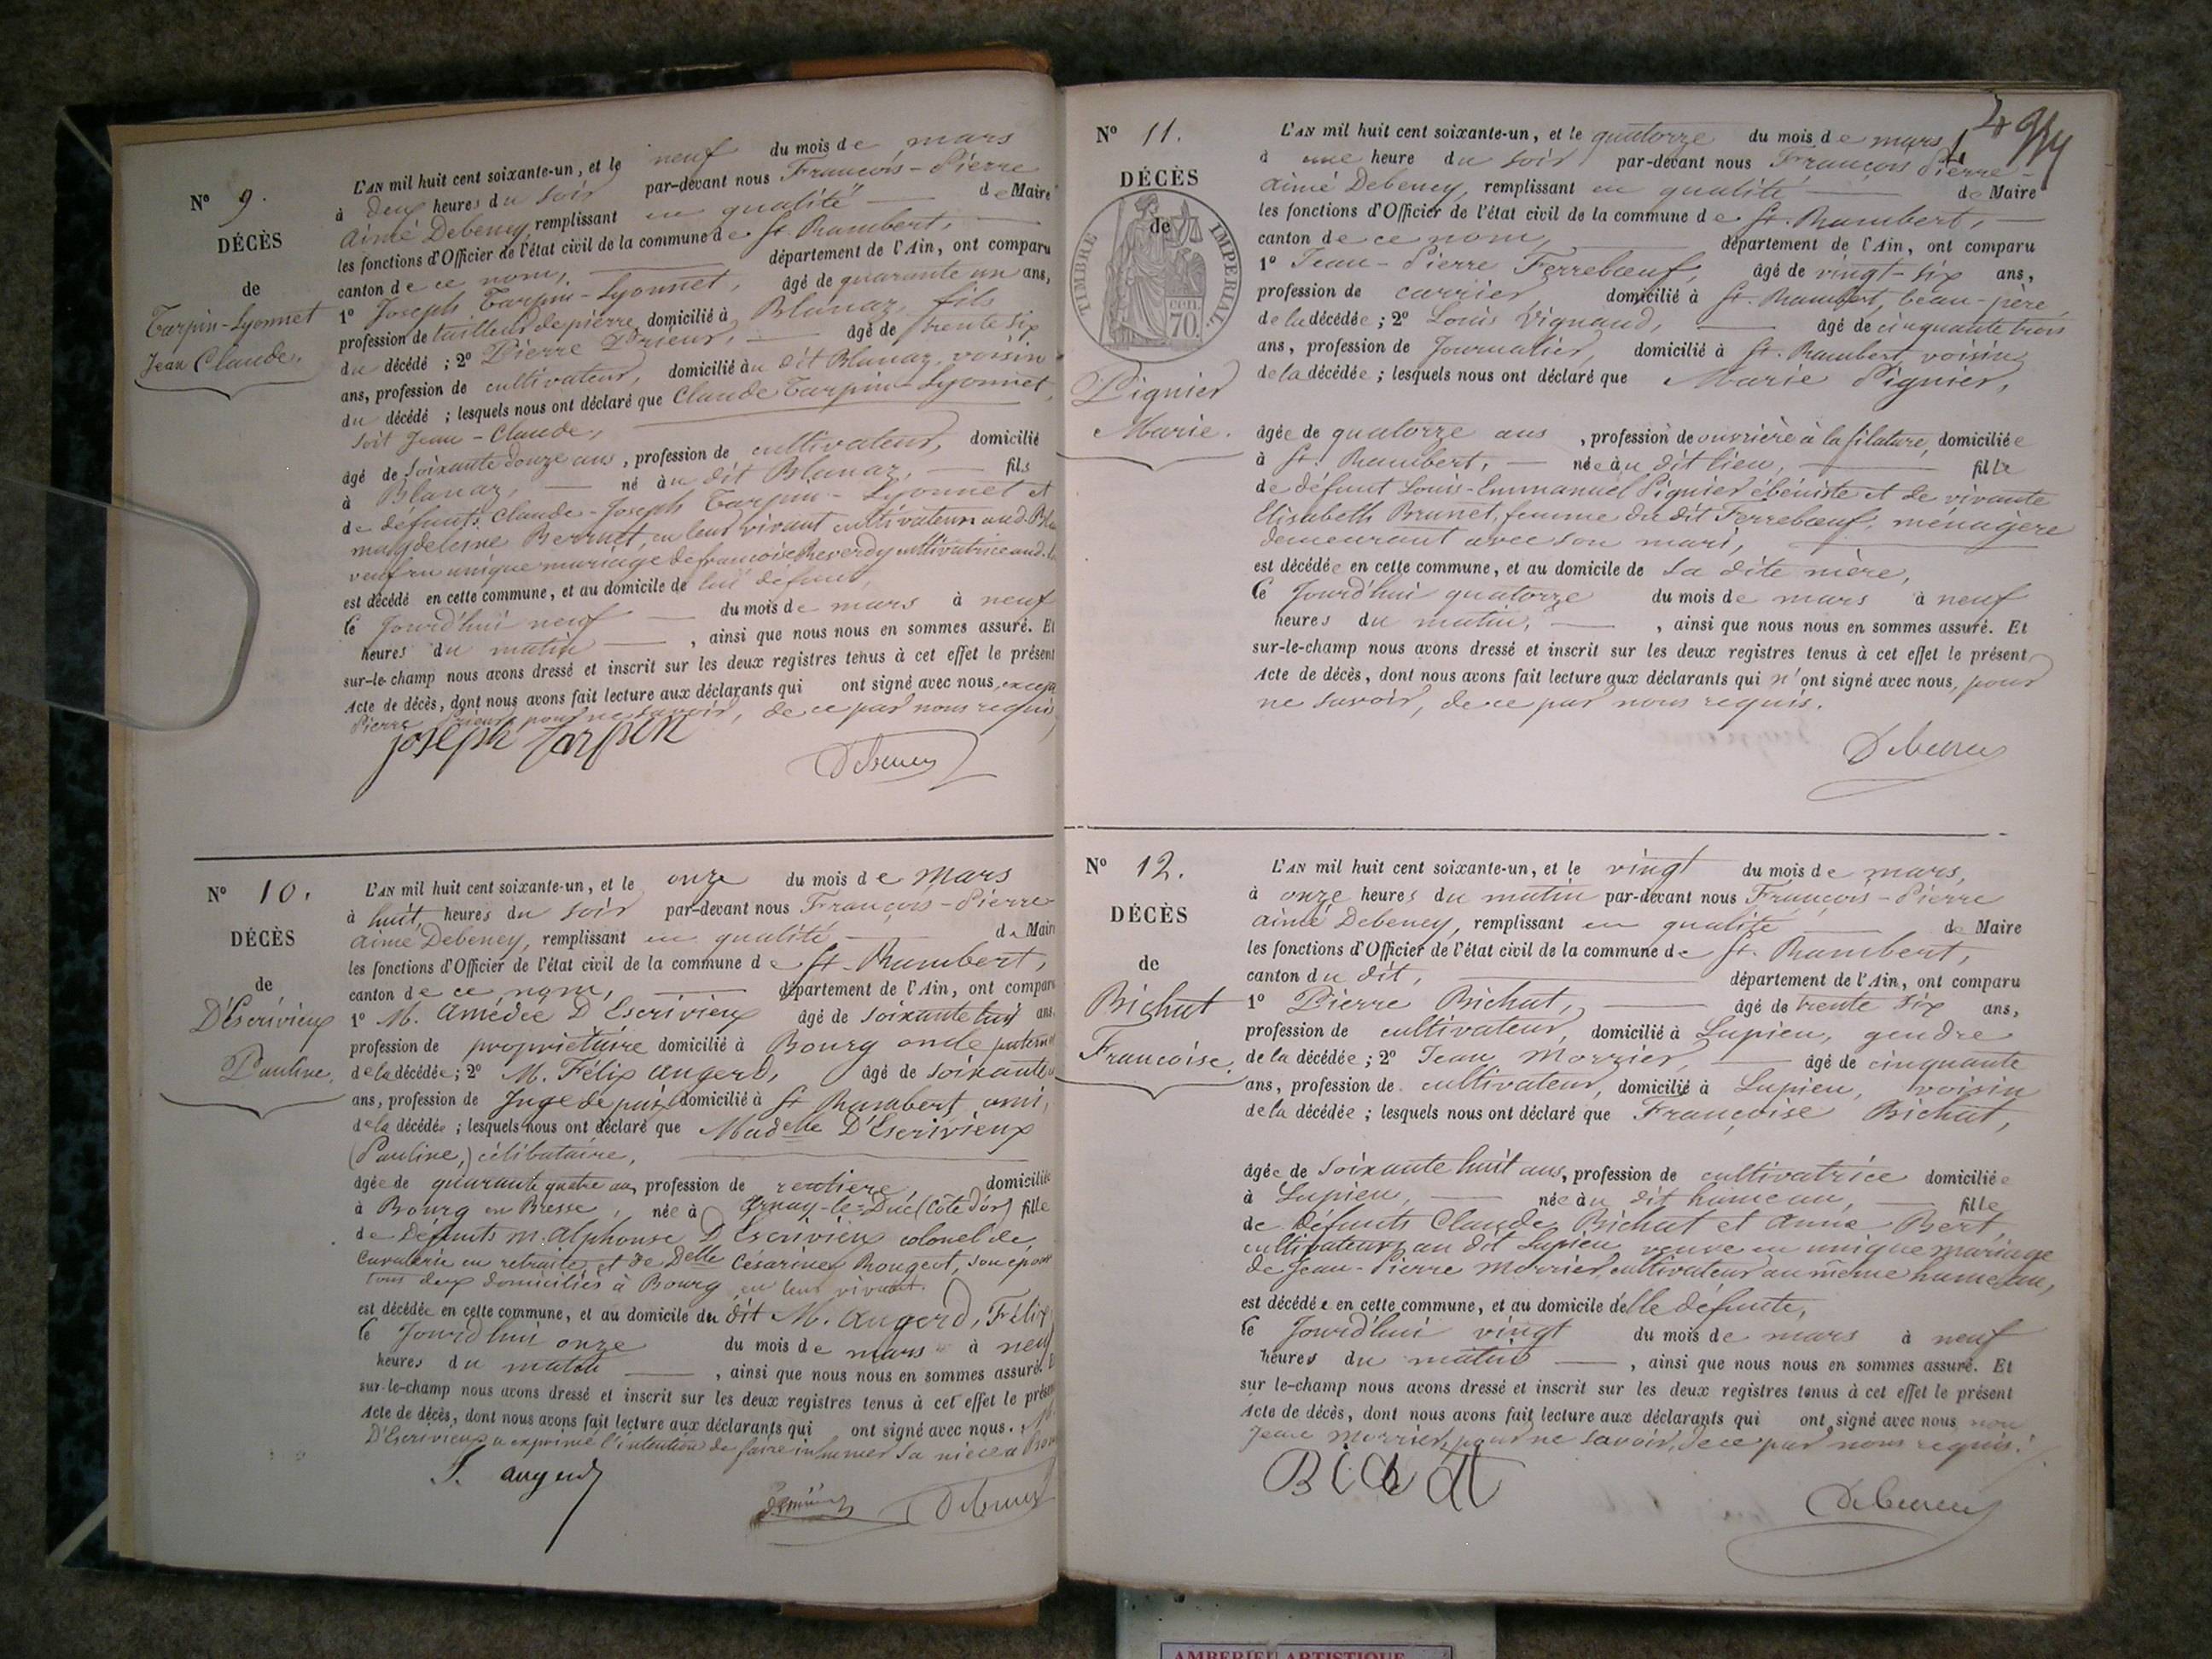 N° 9.
DÉCÈS
de
Tarpin-Lyonnet
Jean Claude.
L'AN mil huit cent soixante-un, et le neuf du mois de mars
à deux heures du soir par-devant nous François-Pierre
Aimé Debeney, remplissant en qualité de Maire
les fonctions d'Officier de l'état civil de la commune de St. Rambert,
canton de ce nom, département de l'Ain, ont comparu
1° Joseph Tarpin-Lyonnet, âgé de quarante un ans,
profession de tailleur de pierre, domicilié à Blanaz, fils
du décédé ; 2° Pierre Prieur, âgé de trente six
ans, profession de cultivateur, domicilié au dit Blanaz, voisin
du décédé ; lesquels nous ont déclaré que Claude Tarpin-Lyonnet,
soit Jean-Claude,
âgé de soixante douze ans, profession de cultivateur, domicilié
à Blanaz, né au dit Blanaz, fils
de défunts Claude-Joseph Tarpin-Lyonnet et
Magdeleine Berrut, en leur vivant cultivateurs aud. Blanaz
veuf en unique mariage de françoise Reverdy cultivatrice aud.
est décédé en cette commune, et au domicile de lui défunt,
le jourd'hui neuf du mois de mars à neuf
heures du matin, ainsi que nous nous en sommes assuré. Et
sur-le-champ nous avons dressé et inscrit sur les deux registres tenus à cet effet le présent
Acte de décès, dont nous avons fait lecture aux déclarants qui ont signé avec nous, excepté
Pierre Prieur, pour ne savoir, de ce par nous requis,
joseph tarpin
Debeney
N° 10.
DÉCÈS
de
D'Escrivieux
Pauline.
L'AN mil huit cent soixante-un, et le onze du mois de Mars
à huit heures du soir par-devant nous François-Pierre
Aimé Debeney, remplissant en qualité de Maire
les fonctions d'Officier de l'état civil de la commune de St. Rambert,
canton de ce nom, département de l'Ain, ont comparu
1° M. Amédée D'Escrivieux âgé de soixante ans,
profession de propriétaire domicilié à Bourg oncle paternel
de la décédée ; 2° M. Félix Augerd, âgé de soixante
ans, profession de Juge de paix domicilié à St Rambert, ami,
de la décédée ; lesquels nous ont déclaré que Madelle D'Escrivieux
(Pauline,) célibataire,
âgée de quarante quatre ans, profession de rentière, domiciliée
à Bourg en Bresse, née à Arnay-le-Duc (Côte d'or) fille
de Défunts M. Alphonse D'Escrivieux colonel de
cavalerie en retraite, et de Delle Césarine Rougeot, son épouse
tous deux domiciliés à Bourg, en leur vivant.
est décédée en cette commune, et au domicile du dit M. Augerd, Félix
le Jourd'hui onze du mois de mars à neuf
heures du matin, ainsi que nous nous en sommes assuré. Et
sur-le-champ nous avons dressé et inscrit sur les deux registres tenus à cet effet le présent
Acte de décès, dont nous avons fait lecture aux déclarants qui ont signé avec nous. M.
D'Escrivieux a exprimé l'intention de faire inhumer sa nièce à Bourg
F. augerd
Debeney
N° 11.
DÉCÈS
de
TIMBRE IMPERIAL.
CEN.
70.
Pignier
Marie.
L'AN mil huit cent soixante-un, et le quatorze du mois de mars,
à une heure du soir par-devant nous François Pierre-
Aimé Debeney, remplissant en qualité de Maire
les fonctions d'Officier de l'état civil de la commune de St. Rambert,
canton de ce nom, département de l'Ain, ont comparu
1° Jean-Pierre Ferrebœuf, âgé de vingt-six ans,
profession de carrier, domicilié à St. Rambert, beau-père,
de la décédée ; 2° Louis Vignaud, âgé de cinquante trois
ans, profession de Journalier, domicilié à St. Rambert, voisin
de la décédée ; lesquels nous ont déclaré que Marie Pignier,
âgée de quatorze ans, profession de ouvrière à la filature, domiciliée
à St. Rambert, née au dit lieu, fille
de défunt Louis-Emmanuel Pignier ébéniste et de vivante
Elisabeth Brunet, femme du dit Ferrebœuf, ménagère
demeurant avec son mari,
est décédée en cette commune, et au domicile de sa dite mère,
le Jourd'hui quatorze du mois de mars à neuf
heures du matin, ainsi que nous nous en sommes assuré. Et
sur-le-champ nous avons dressé et inscrit sur les deux registres tenus à cet effet le présent
Acte de décès, dont nous avons fait lecture aux déclarants qui n'ont signé avec nous, pour
ne savoir, de ce par nous requis.
Debeney
N° 12.
DÉCÈS
de
Bichat
Francoise.
L'AN mil huit cent soixante-un, et le vingt du mois de mars,
à onze heures du matin par-devant nous François-Pierre
Aimé Debeney, remplissant en qualité de Maire
les fonctions d'Officier de l'état civil de la commune de St. Rambert,
canton du dit, département de l'Ain, ont comparu
1° Pierre Bichat, âgé de trente six ans,
profession de cultivateur, domicilié à Lupieu, gendre
de la décédée ; 2° Jean Morrier, âgé de cinquante
ans, profession de cultivateur, domicilié à Lupieu, voisin
de la décédée ; lesquels nous ont déclaré que Françoise Bichat,
âgée de soixante huit ans, profession de cultivatrice domiciliée
à Lupieu, née au dit hameau, fille
de Défunts Claude Bichat et Anne Bert,
cultivateurs au dit Lupieu, veuve en unique mariage
de Jean-Pierre Morrier, cultivateur au même hameau,
est décédée en cette commune, et au domicile d'elle défunte,
le Jourd'hui vingt du mois de mars à neuf
heures du matin, ainsi que nous nous en sommes assuré. Et
sur le-champ nous avons dressé et inscrit sur les deux registres tenus à cet effet le présent
Acte de décès, dont nous avons fait lecture aux déclarants qui ont signé avec nous non
Jean Morrier, pour ne savoir, de ce par nous requis.
Bichat
Debeney
AMBERIEU ARTISTIQUE